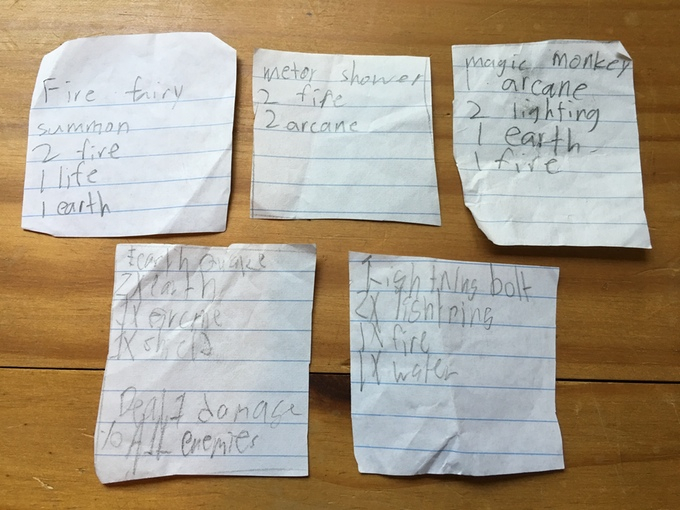 Fire fairy
summon
2 fire
1 life
1 earth
metor shower
2 fire
2 arcane
magic monkey
1 arcane
2 lighting
1 earth
1 fire
Earth Quake
2X earth
1X arcane
1X shield
Deal 1 damage
to All enemies
Lightning bolt
2X lightning
1X fire
1X water